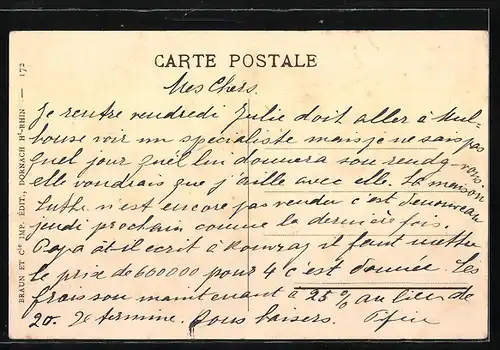 CARTE POSTALE
BRAUN ET Cie IMP. ÉDIT., DORNACH Ht-RHIN — 172
Mes Chers.
Je rentre vendredi Julie doit aller à Mul=
house voir un spécialiste mais je ne sais pas
quel jour qu'el lui donnera son rendez-vous.
elle voudrais que j'aille avec elle. La maison
n'est encore pas vendu c'est de nouveau
jeudi prochain comme la dernière fois.
Papa at-il ecrit à il faut mettre
le prix de 600000 pour 4 c'est donnée. Les
frais son maintenant à 25% au lieu de
20. Je termine. Bons baisers.